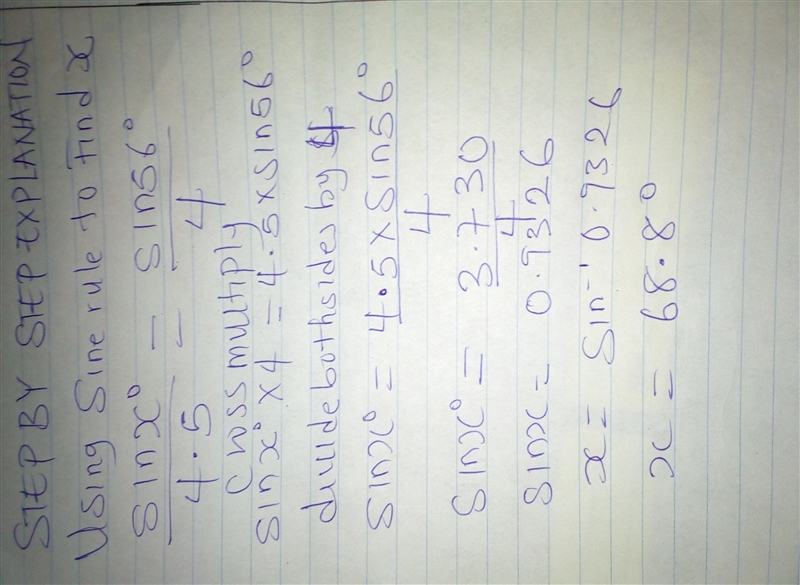 STEP BY STEP EXPLANATION
Using Sine rule to Find x
Sinx° = Sin56°
4.5 4
Cross multiply
Sinx° × 4 = 4.5 × Sin56°
divide bothsides by 4
Sinx° = 4.5 × Sin56°
4
Sinx° = 3.730
4
Sinx = 0.9326
x = Sin⁻¹ 0.9326
x = 68.8°